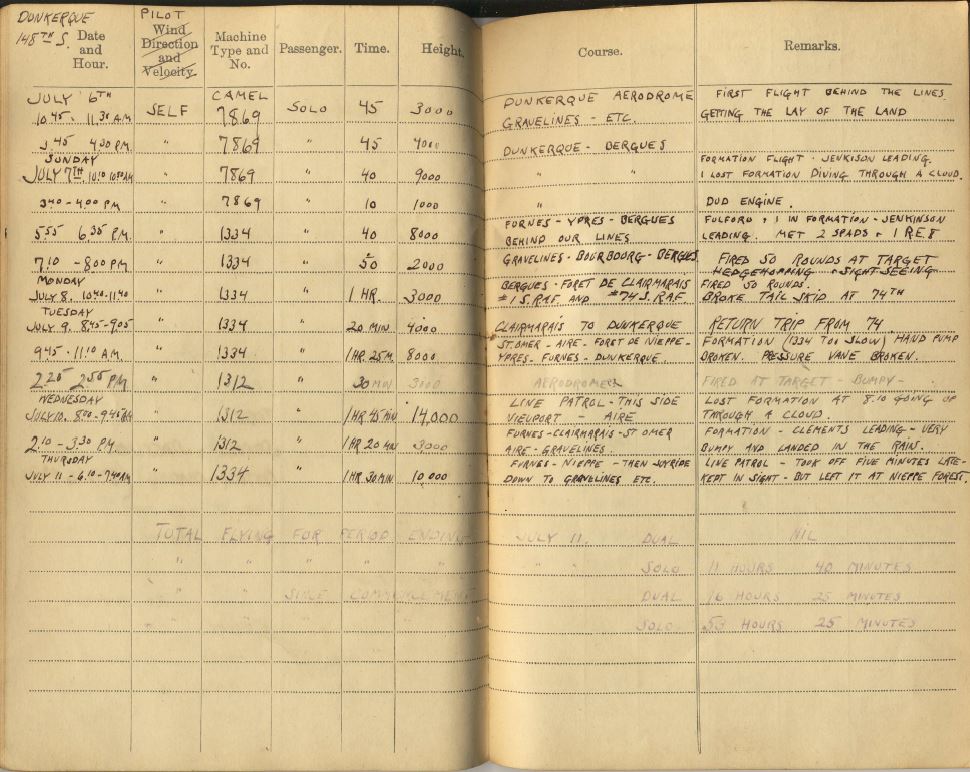 DUNKERQUE
148TH S.
Date and Hour. PILOT Wind Direction and Velocity. Machine Type and No. Passenger. Time. Height. Course. Remarks.
JULY 6TH CAMEL DUNKERQUE AERODROME FIRST FLIGHT BEHIND THE LINES
10.45. 11.30 A.M. SELF 7869 SOLO 45 3000 GRAVELINES - ETC. GETTING THE LAY OF THE LAND
3.45 4.30 P.M. " 7869 " 45 4000 DUNKERQUE - BERGUES
SUNDAY FORMATION FLIGHT - JENKISON LEADING.
JULY 7TH. 10.10 10.50 AM " 7869 " 40 9000 " " I LOST FORMATION DIVING THROUGH A CLOUD.
3.40 - 4.00 PM " 7869 " 10 1000 " DUD ENGINE.
FORNES - YPRES - BERGUES FULFORD & I IN FORMATION - JENKINSON
5.55 6.35 P.M. " 1334 " 40 8000 BEHIND OUR LINES LEADING. MET 2 SPADS & 1 R.E.8
7.10 - 8.00 PM " 1334 " 50 2000 GRAVELINES - BOURBOURG - BERGUES. FIRED 50 ROUNDS AT TARGET
HEDGEHOPPING & SIGHT SEEING
MONDAY BERGUES - FORET DE CLAIRMARAIS FIRED 50 ROUNDS.
JULY 8. 10.40-11.40 " 1334 " 1 HR. 3000 #1 S. R.A.F. AND #74 S. R.A.F. BROKE TAIL SKID AT 74TH
TUESDAY
JULY 9. 8.45-9.05 " 1334 " 20 MIN 4000 CLAIRMARAIS TO DUNKERQUE RETURN TRIP FROM 74.
ST.OMER - AIRE - FORET DE NIEPPE - FORMATION (1334 TOO SLOW) HAND PUMP
9.45 - 11.10 A.M. " 1334 " 1 HR. 25 M. 8000 YPRES - FURNES - DUNKERQUE. BROKEN. PRESSURE VANE BROKEN.
2.25 2.55 P.M. " 1312 " 30 MIN 3000 AERODROME FIRED AT TARGET - BUMPY -
WEDNESDAY LINE PATROL - THIS SIDE LOST FORMATION AT 8.10 GOING UP
JULY 10. 8.00 - 9.45 AM " 1312 " 1 HR 45 MIN 14,000 NIEUPORT - AIRE THROUGH A CLOUD.
FURNES - CLAIRMARAIS - ST OMER FORMATION - CLEMENTS LEADING - VERY
2.10 - 3.30 P.M. " 1312 " 1 HR 20 MIN 3000 AIRE - GRAVELINES. BUMPY AND LANDED IN THE RAIN.
THURSDAY FURNES - NIEPPE - THEN JOYRIDE LINE PATROL - TOOK OFF FIVE MINUTES LATE -
JULY 11 - 6.10 - 7.40 AM " 1334 " 1 HR. 30 MIN 10,000 DOWN TO GRAVELINES ETC. KEPT IN SIGHT - BUT LEFT IT AT NIEPPE FOREST.
TOTAL FLYING FOR PERIOD ENDING JULY 11. DUAL NIL
" " " " " " " SOLO 11 HOURS 40 MINUTES
" " SINCE COMMENCEMENT DUAL 16 HOURS 25 MINUTES
" SOLO 53 HOURS 25 MINUTES